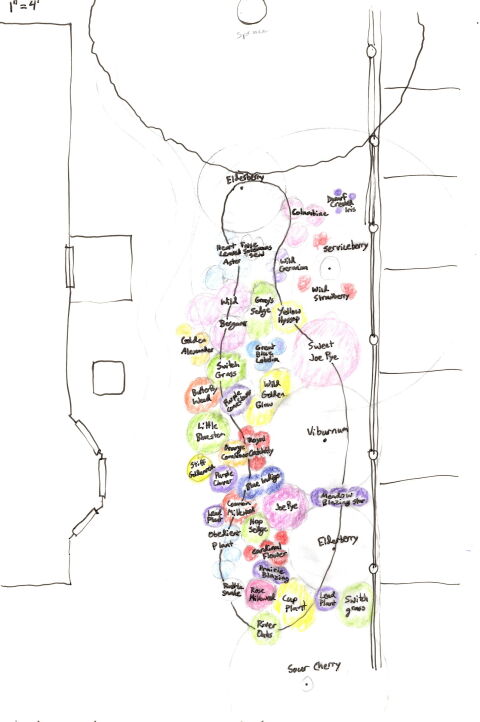 1"=4'
Spruce
Elderberry
Columbine
Dwarf
Crested
Iris
Heart
Leaved
Aster
False
Solomons
Seal
Serviceberry
Wild
Geranium
Wild
Strawberry
Wild
Bergamot
Gray's
Sedge
Yellow
Hyssop
Golden
Alexander
Great
Blue
Lobelia
Sweet
Joe Pye
Switch
Grass
Butterfly
Weed
Purple
Coneflower
Wild
Golden
Glow
Little
Bluestem
Viburnum
Orange
Coneflower
Royal
Catchfly
Stiff
Goldenrod
Purple
Clover
Blue Indigo
Meadow
Blazing Star
Lead
Plant
Common
Milkweed
Joe Pye
Obedient
Plant
Hop
Sedge
Elderberry
Cardinal
Flower
Prairie
Blazing
Rose
Milkweed
Cup
Plant
Lead
Plant
Switch
grass
River
Oats
Sour Cherry